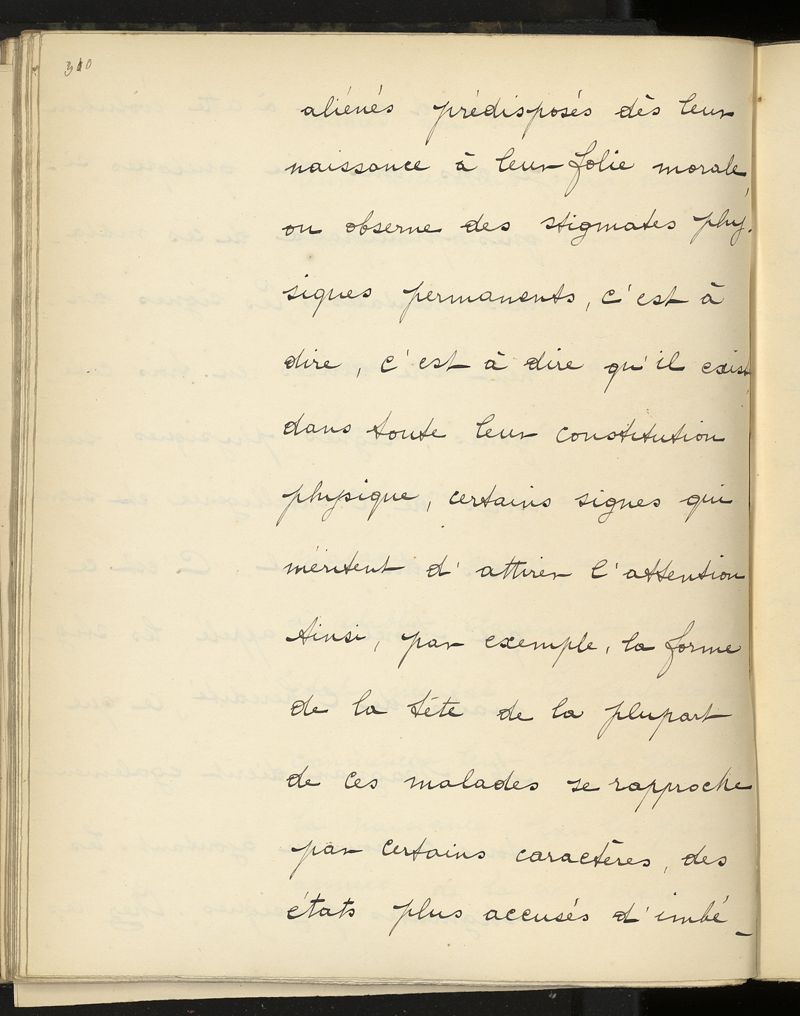 310
aliénés prédisposés dès leur
naissance à leur folie morale,
on observe des stigmates phy-
siques permanents, c'est à
dire, c'est à dire qu'il exist
dans toute leur constitution
physique, certains signes qui
méritent d'attirer l'attention
Ainsi, par exemple, la forme
de la tête de la plupart
de ces malades se rapproche
par certains caractères, des
états plus accusés d'imbé-